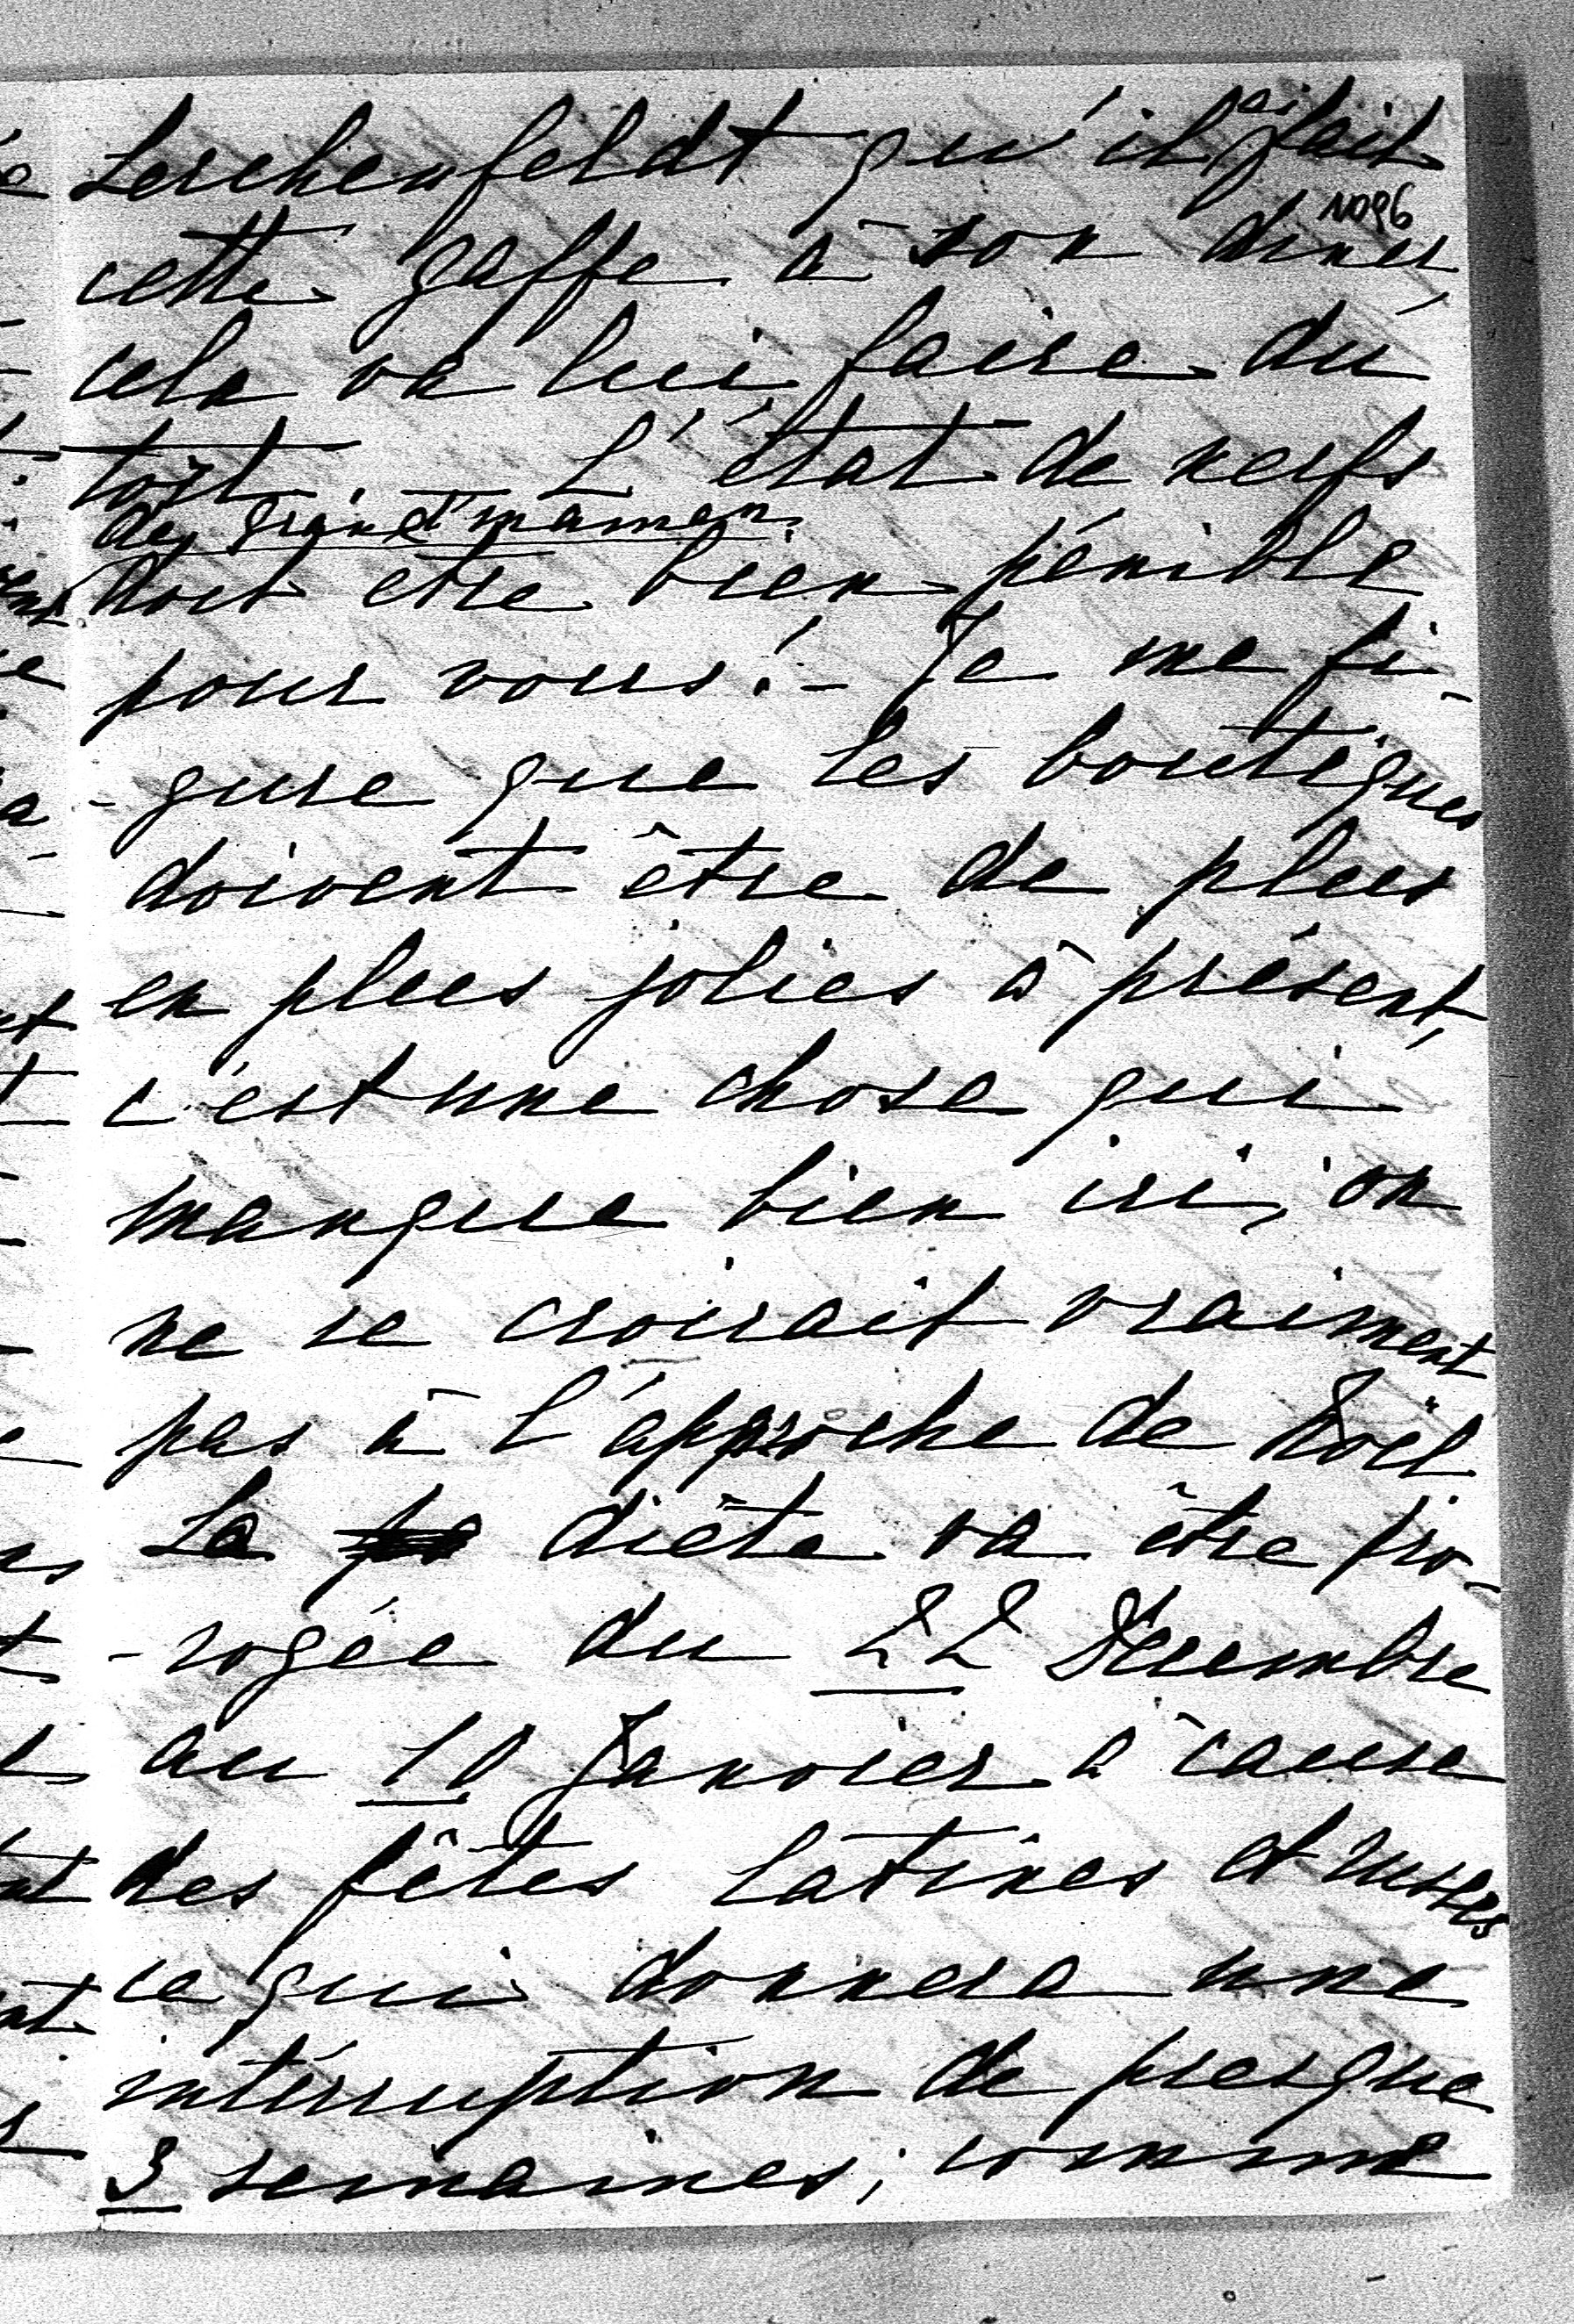 Lerchenfeldt qu'il ai fait
1096
cette gaffe à son diner,
cela va lui faire du
tort. — L'état de nerfs
de Grand'maman
doit etre bien pénible
pour vous! - Je me fi-
-gure que les boutiques
doivent être de plus
en plus jolies à présent,
c'est une chose qui
manque bien ici, on
ne se croirait vraiment
pas à l'approche de Noël.
La diète va être pro-
-rogée du 22 Décembre
au 10 Janvier à cause
des fêtes latines et russes
ce qui donnera une
intérruption de presque
3 semaines; comme